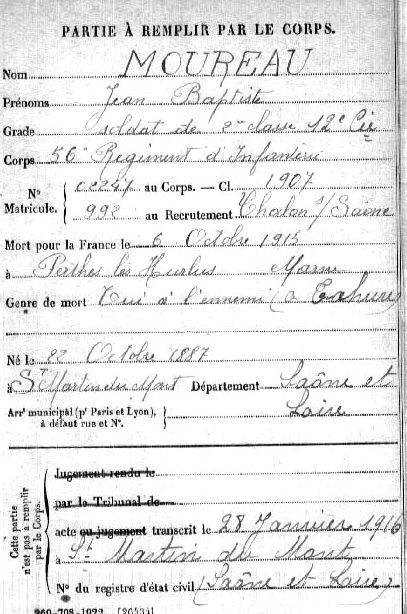 PARTIE À REMPLIR PAR LE CORPS.
Nom MOUREAU
Prénoms Jean Baptiste
Grade soldat de 2me classe 12e Cie
Corps 56e Régiment d'Infanterie
N° Matricule. { 02247 au Corps. — Cl. 1907
992 au Recrutement Chalon s/ Saône
Mort pour la France le 6 Octobre 1915
à Perthes les Hurlus Marne
Genre de mort Tué à l'ennemi (à Tahure)
Né le 22 Octobre 1887
à St Martin du Mont Département Saône et Loire
Arrt municipal (pr Paris et Lyon), à défaut rue et N°.
Cette partie n'est pas à remplir par le Corps.
Jugement rendu le
par le Tribunal de
acte ou jugement transcrit le 28 Janvier 1916
à St Martin du Mont
N° du registre d'état civil (Saône et Loire)